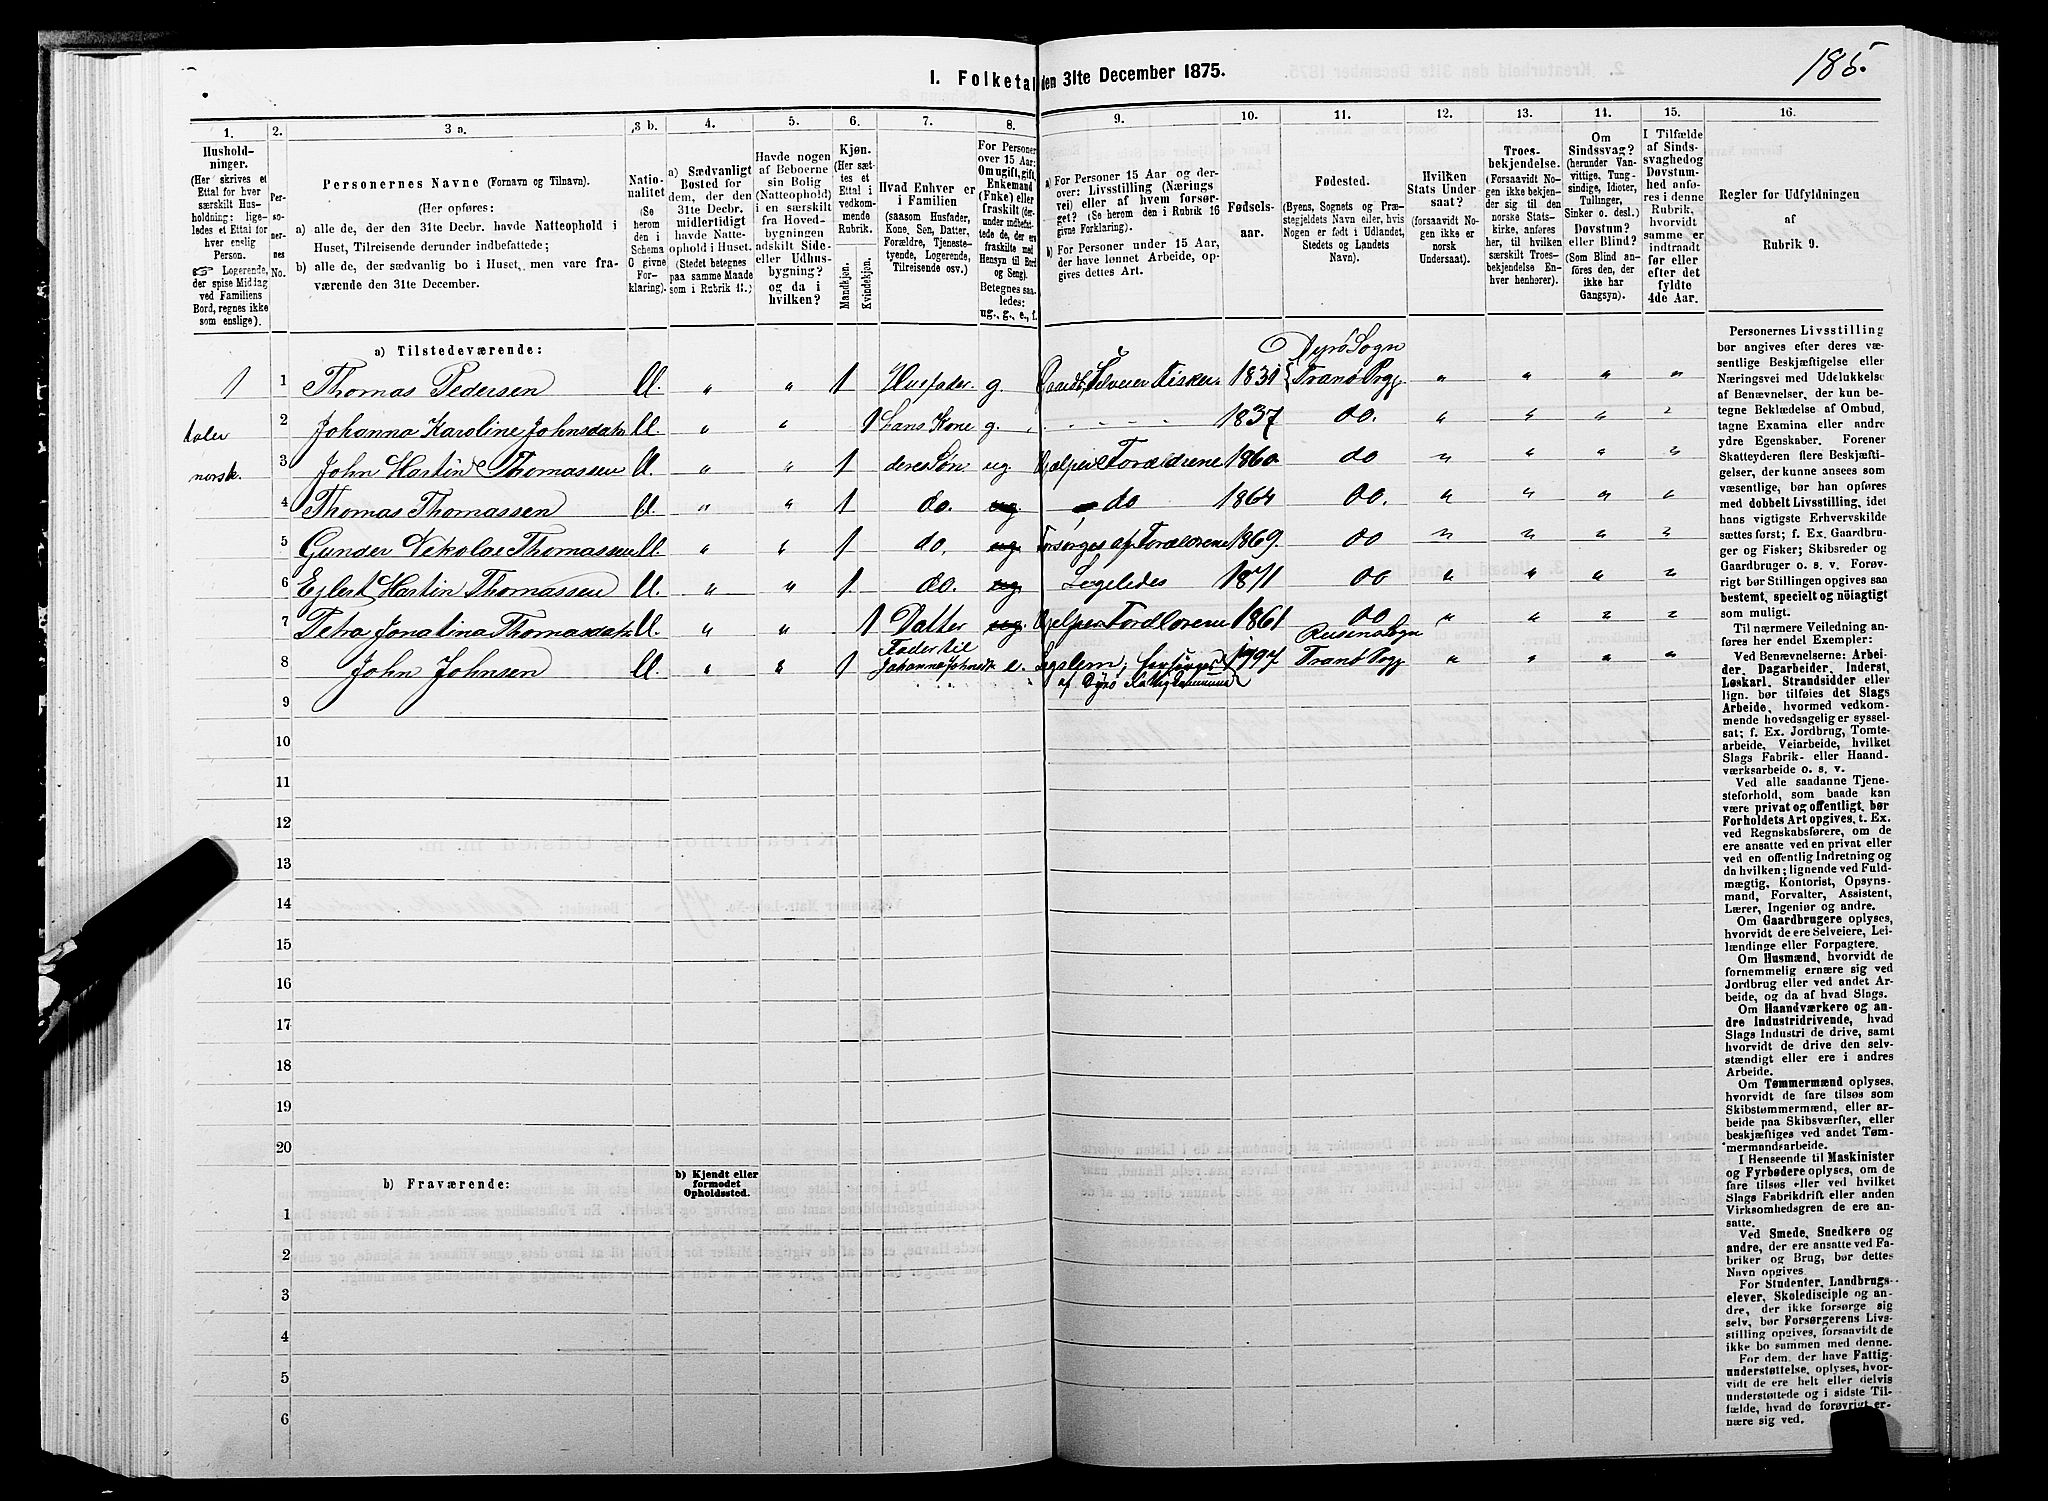 185.
1. Folketal den 31te December 1875.
1.
2.
3 a.
3 b.
4.
5.
6.
7.
8.
9.
10.
11.
12.
13.
14.
15.
16.
Hushold-
ninger.
(Her skrives et
Ettal for hver
særskilt Hus-
holdning; lige-
ledes et Ettal
for hver
enslig
Person.
☞ Logerende,
der spise Middag
ved Familiens
Bord, regnes ikke
som enslige).
Per-
so-
ner-
nes
No.
Personernes Navne (Fornavn og Tilnavn).
(Her opføres:
a) alle de, der den 31te Decbr. havde Natteophold i
Huset, Tilreisende derunder indbefattede;
b) alle de, der sædvanlig bo i Huset, men vare fra-
værende den 31te December.
Natio-
nalitet
(Se
herom
den i
Schema
G givne
For-
klaring).
a) Sædvanligt
Bosted for
dem, der den
31te Decbr.
midlertidigt
havde Natte-
ophold i Huset.
(Stedet betegnes
paa samme Maade
som i Rubrik 11.)
Havde nogen
af Beboerne
sin Bolig
(Natteophold)
i en særskilt
fra Hoved-
bygningen
adskilt Side-
eller Udhus-
bygning?
og da i
hvilken?
Kjøn.
(Her sæt-
tes et
Ettal i
vedkom-
mende
Rubrik.
Mandkjøn.
Kvindekjøn.
Hvad Enhver er
i Familien
(saasom Husfader,
Kone, Søn, Datter,
Forældre, Tjeneste-
tyende, Logerende,
Tilreisende osv.)
For Personer
over 15 Aar:
Om ugift, gift,
Enkemand
(Enke) eller
fraskilt (der-
under indbefat-
tede de, der ere
fraskilte med
Hensyn til Bord
og Seng).
Betegnes saa-
ledes:
ug., g., e., f.
a) For Personer 15 Aar og der-
over: Livsstilling (Nærings
vei) eller af hvem forsør-
get? (Se herom den i Rubrik 16
givne Forklaring).
b) For Personer under 15 Aar,
der have lønnet Arbeide, op-
gives dettes Art.
Fødsels-
aar.
Fødested.
(Byens, Sognets og Præ-
stegjeldets Navn eller, hvis
Nogen er født i Udlandet,
Stedets og Landets
Navn).
Hvilken
Stats Under-
saat?
(forsaavidt No-
gen ikke er
norsk
Undersaat).
Troes-
bekjendelse.
(Forsaavidt No-
gen ikke bekjen-
der sig til den
norske Stats-
kirke, anføres
her, til hvilken
særskilt Troes-
bekjendelse En-
hver henhører).
Om
Sindssvag?
(herunder Van-
vittige, Tung-
sindige, Idioter,
Tullinger,
Sinker o. desl.)
Døvstum?
eller Blind?
(Som Blind an-
føres den, der
ikke har
Gangsyn).
I Tilfælde
af Sinds-
svaghed og
Døvstum-
hed anfø-
res i denne
Rubrik,
hvorvidt
samme er
indtraadt
før eller
efter det
fyldte
4de Aar.
Regler for Udfyldningen
af
Rubrik 9.
a) Tilstedeværende:
Dyrø Sogn
1 1 Thomas Pedersen „ „ 1 Husfader g. Gaardb, Selveier Fisker 1831 Tranø Prgj. „ „ „ „
taler
norsk.
2 Johanna Karoline Johnsdatr „ „ 1 hans Kone g. 1837 do. „ „ „ „
3 John Martin Thomassen „ „ 1 deres Søn ug. Hjelper Forældrene 1860 do „ „ „ „
4 Thomas Thomassen „ „ 1 do. ug. do 1864 do. „ „ „ „
5 Gunder Nikolai Thomassen „ „ 1 do. ug. Forsørges af Forældrene 1869. do „ „ „ „
6 Eglert Martin Thomassen „ „ 1 do. ug Ligeledes 1871 do „ „ „ „
7 Petra Jonatina Thomasdatr „ „ 1 Datter ug. Hjelper Forældrene 1861 do „ „ „ „
8 John Johnsen „ „ 1 Fader til Johanna Johnsd. e. Lægslem, forsørges af Dyrø Fattigkommune 1797 Reisens Sogn Tranø Prgj „ „ „ „
9
10
11
12
13
14
15
16
17
18
19
20
b) Fraværende:
b) Kjendt eller
formodet
Opholdssted.
1
2
3
4
5
6
Personernes Livsstilling
bør angives efter deres væ-
sentlige Beskjæftigelse eller
Næringsvei med Udelukkelse
af Benævnelser, der kun be-
tegne Beklædelse af Ombud,
tagne Examina eller andre
ydre Egenskaber. Forener
Skatteyderen flere Beskjæfti-
gelser, der kunne ansees som
væsentlige, bør han opføres
med dobbelt Livsstilling, idet
hans vigtigste Erhvervskilde
sættes først; f. Ex. Gaardbru-
ger og Fisker; Skibsreder og
Gaardbruger o. s. v. Forøv-
rigt bør Stillingen opgives saa
bestemt, specielt og nöiagtigt
som muligt.
Til nærmere Veiledning an-
føres her endel Exempler:
Ved Benævnelserne: Arbei-
der, Dagarbeider, Inderst,
Løskarl, Strandsidder eller
lign. bør tilføies det Slags
Arbeide, hvormed vedkom-
mende hovedsagelig er syssel-
sat; f. Ex. Jordbrug, Tomte-
arbeide, Veiarbeide, hvilket
Slags Fabrik- eller Haand-
værksarbeide o. s. v.
Ved alle saadanne Tjene-
steforhold, som baade kan
være privat og offentligt, bør
Forholdets Art opgives, t. Ex.
ved Regnskabsførere, om de
ere ansatte ved en privat eller
ved en offentlig Indretning og
da hvilken; lignende ved Fuld-
mægtig, Kontorist, Opsyns-
mand, Forvalter, Assistent,
Lærer, Ingeniør og andre.
Om Gaardbrugere oplyses,
hvorvidt de ere Selveiere, Lei-
lændinge eller Forpagtere.
Om Husmænd, hvorvidt de
fornemmelig ernære sig ved
Jordbrug eller ved andet Ar-
beide, og da af hvad Slags.
Om Haandværkere og an-
dre Industridrivende, hvad
Slags Industri de drive, samt
hvorvidt de drive den selv-
stændigt eller ere i andres
Arbeide.
Om Tømmermænd oplyses,
hvorvidt de fare tilsøs som
Skibstømmermænd, eller ar-
beide paa Skibsværfter, eller
beskjæftiges ved andet Tøm-
mermandsarbeide.
I Henseende til Maskinister
og Fyrbødere oplyses, om de
fare tilsøs eller ved hvilket
Slags Fabrikdrift eller anden
Virksomhedsgren de ere an-
satte.
Ved Smede, Snedkere og
andre, der ere ansatte ved Fa-
briker og Brug, bør dettes
Navn opgives.
For Studenter, Landbrugs-
elever, Skoledisciple og an-
dre, der ikke forsørge sig
selv, bør Forsørgerens Livs-
stilling opgives, forsaavidt de
ikke bo sammen med denne.
For dem, der have Fattig-
understøttelse, oplyses, hvor-
vidt de ere helt eller delvis
understøttede og i sidste Til-
fælde, hvad de forøvrigt er-
nære sig ved.